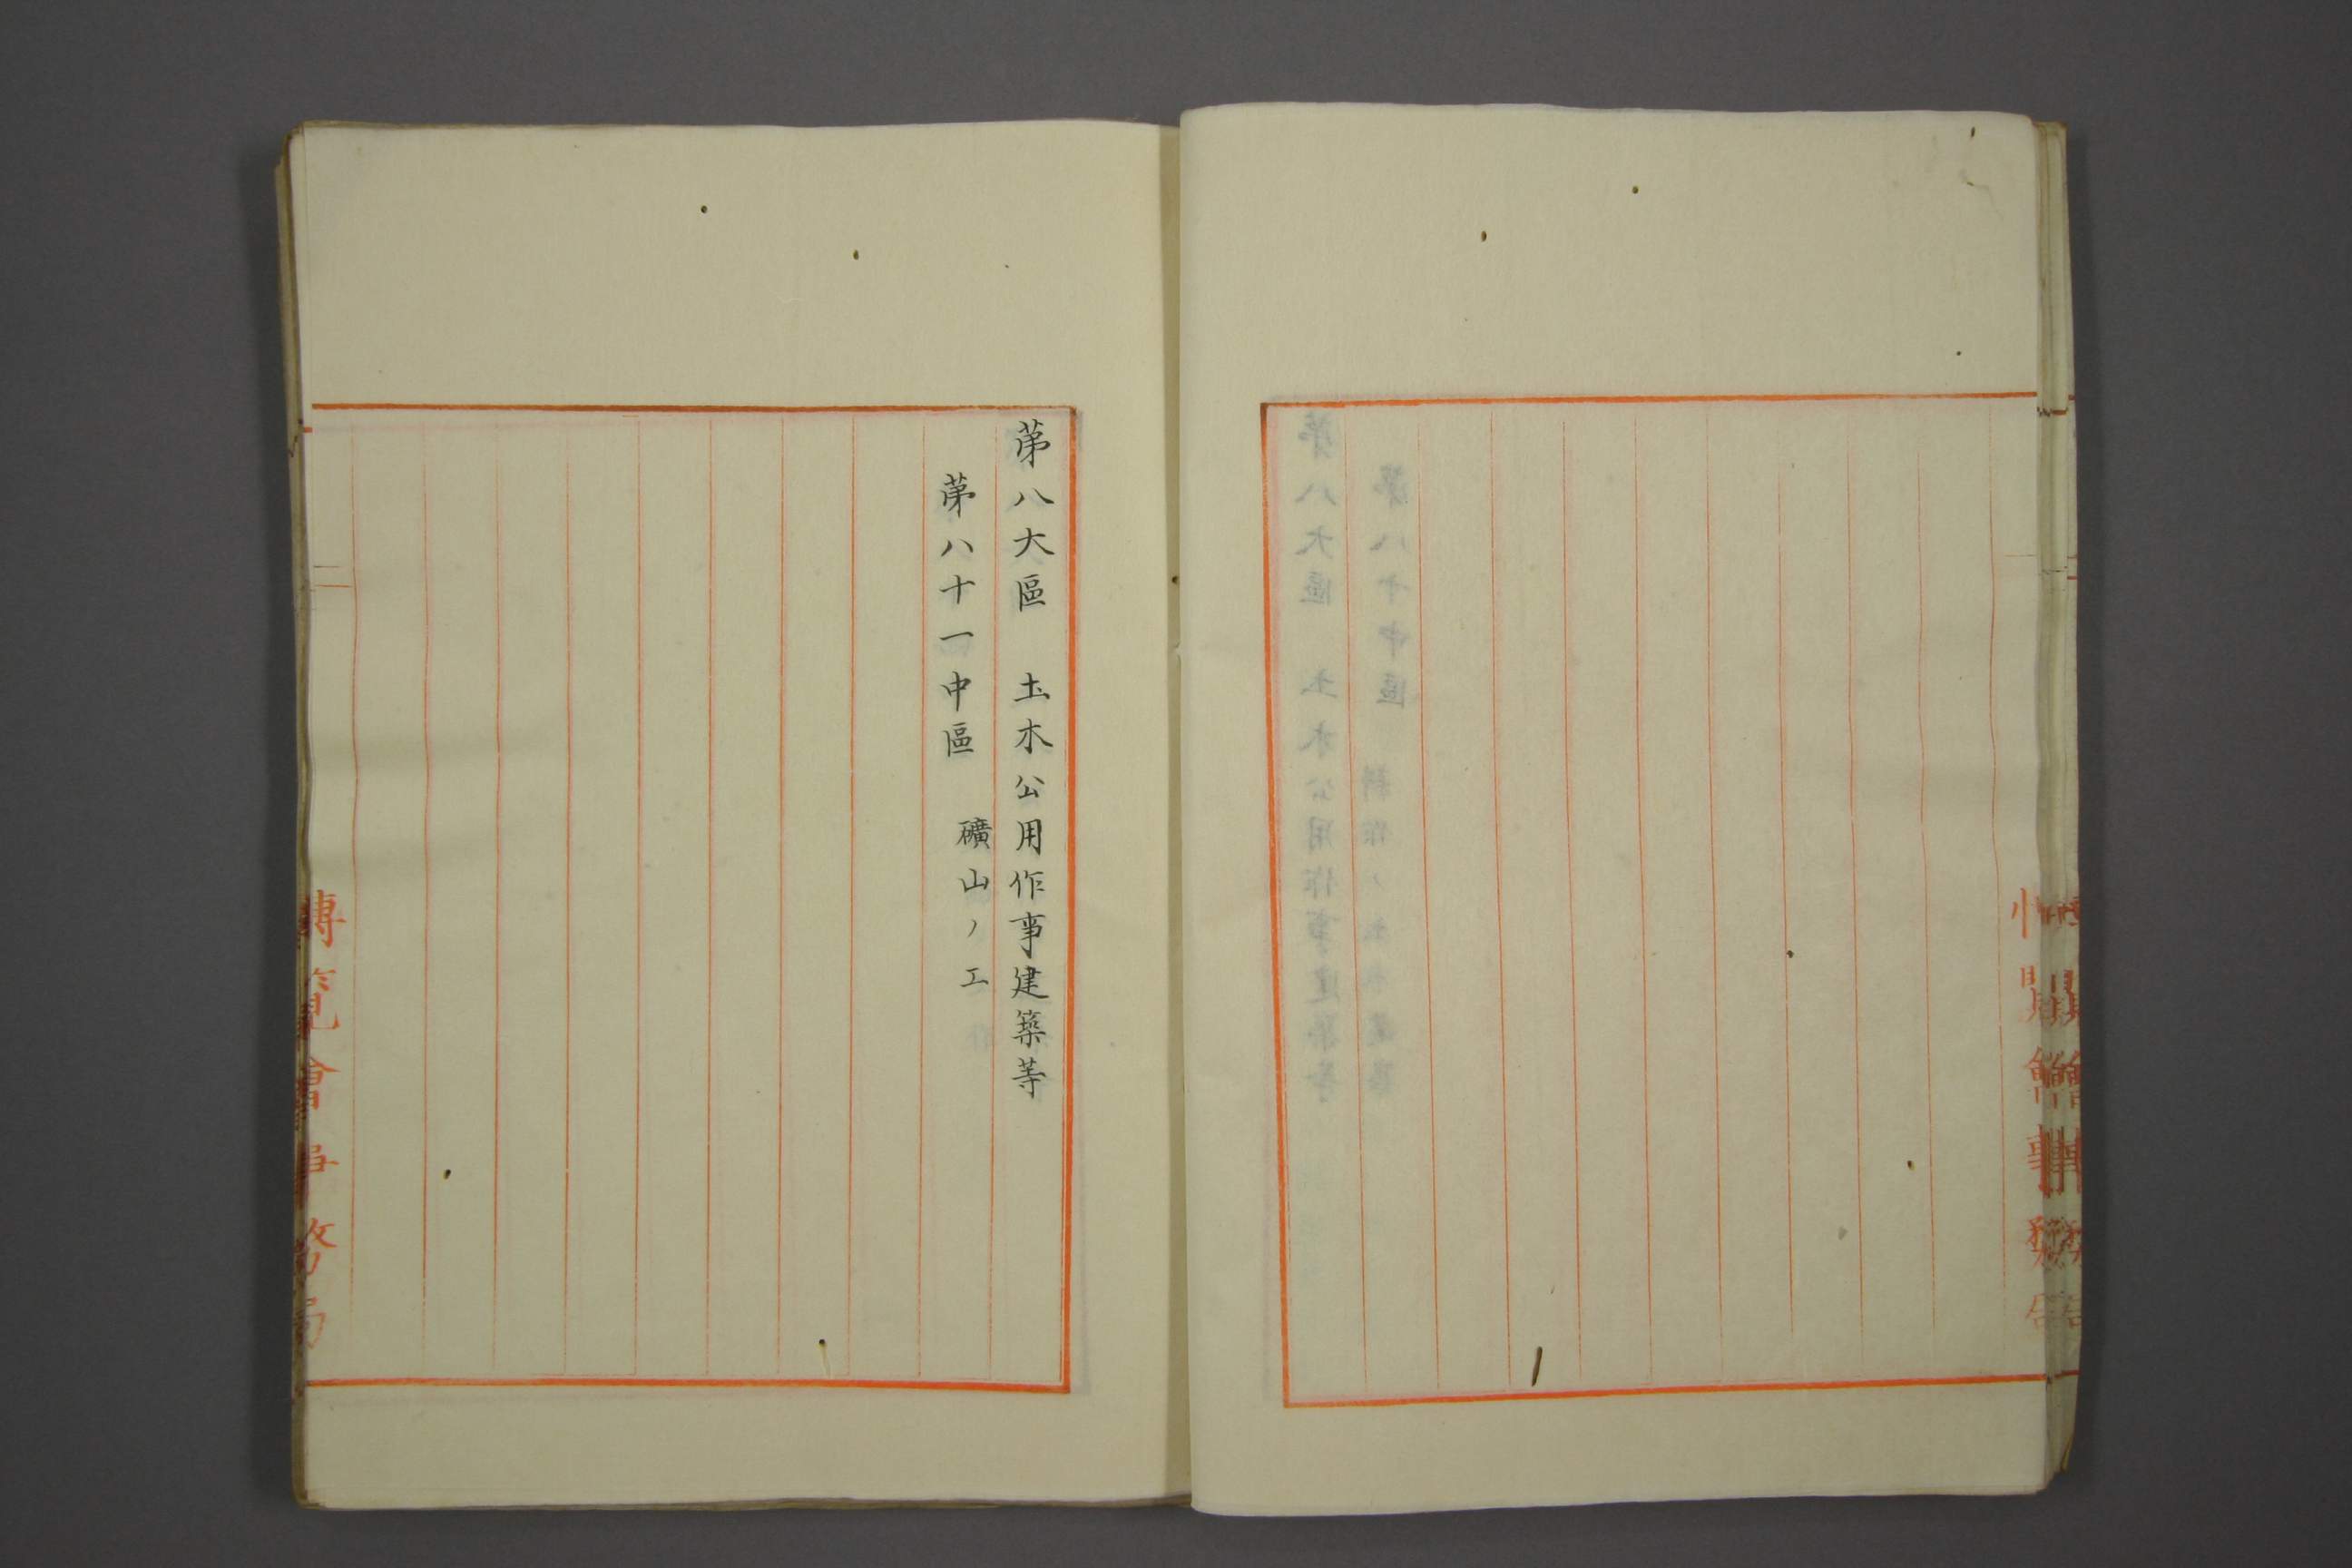 第八大區　土木公用作事建築等
第八十一中區　礦山ノ工
博覽會事務局